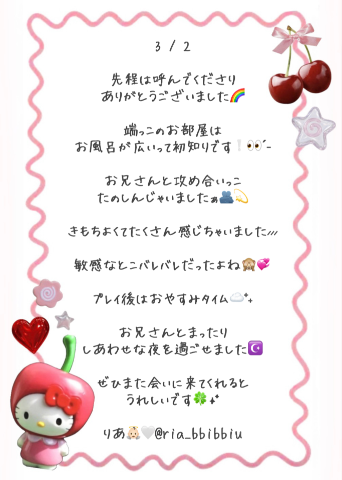 3 / 2
先程は呼んでくださり
ありがとうございました🌈
端っこのお部屋は
お風呂が広いって初知りです❕👀´-
お兄さんと攻め合いっこ
たのしんじゃいましたぁ🫂💫
きもちよくてたくさん感じちゃいました///
敏感なとこバレバレだったよね🙈💞
プレイ後はおやすみタイム☁️₊˚
お兄さんとまったり
しあわせな夜を過ごせました☪️
ぜひまた会いに来てくれると
うれしいです🍀₊˚
りあ👼🏻🤍@ria_bbibbiu